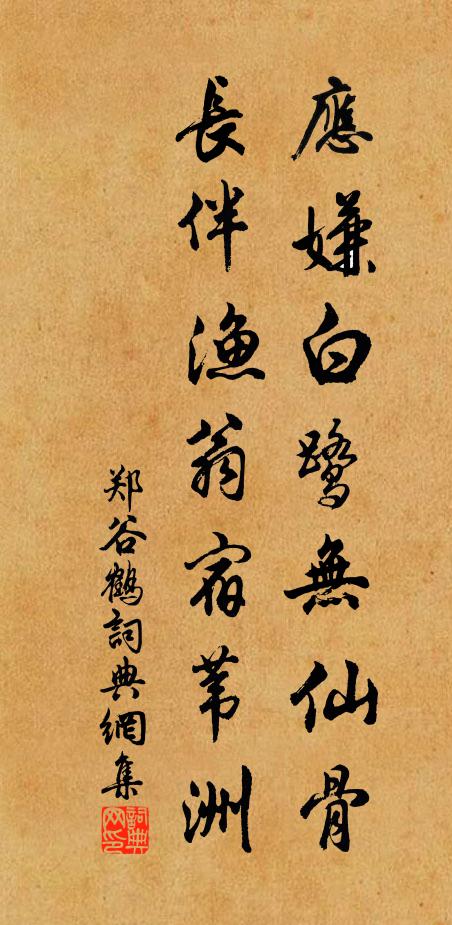 應嫌白鷺無仙骨
長伴漁翁宿葦洲
郑谷鶴詞典網集
詞典网印